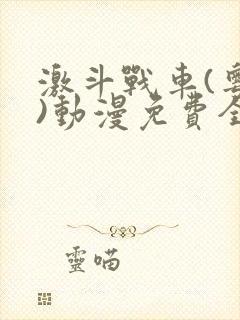 激斗戰車(
)動漫免費全
靈喵